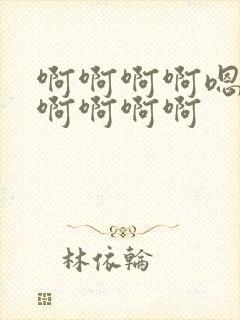 啊啊啊啊嗯
啊啊啊啊
林依輪